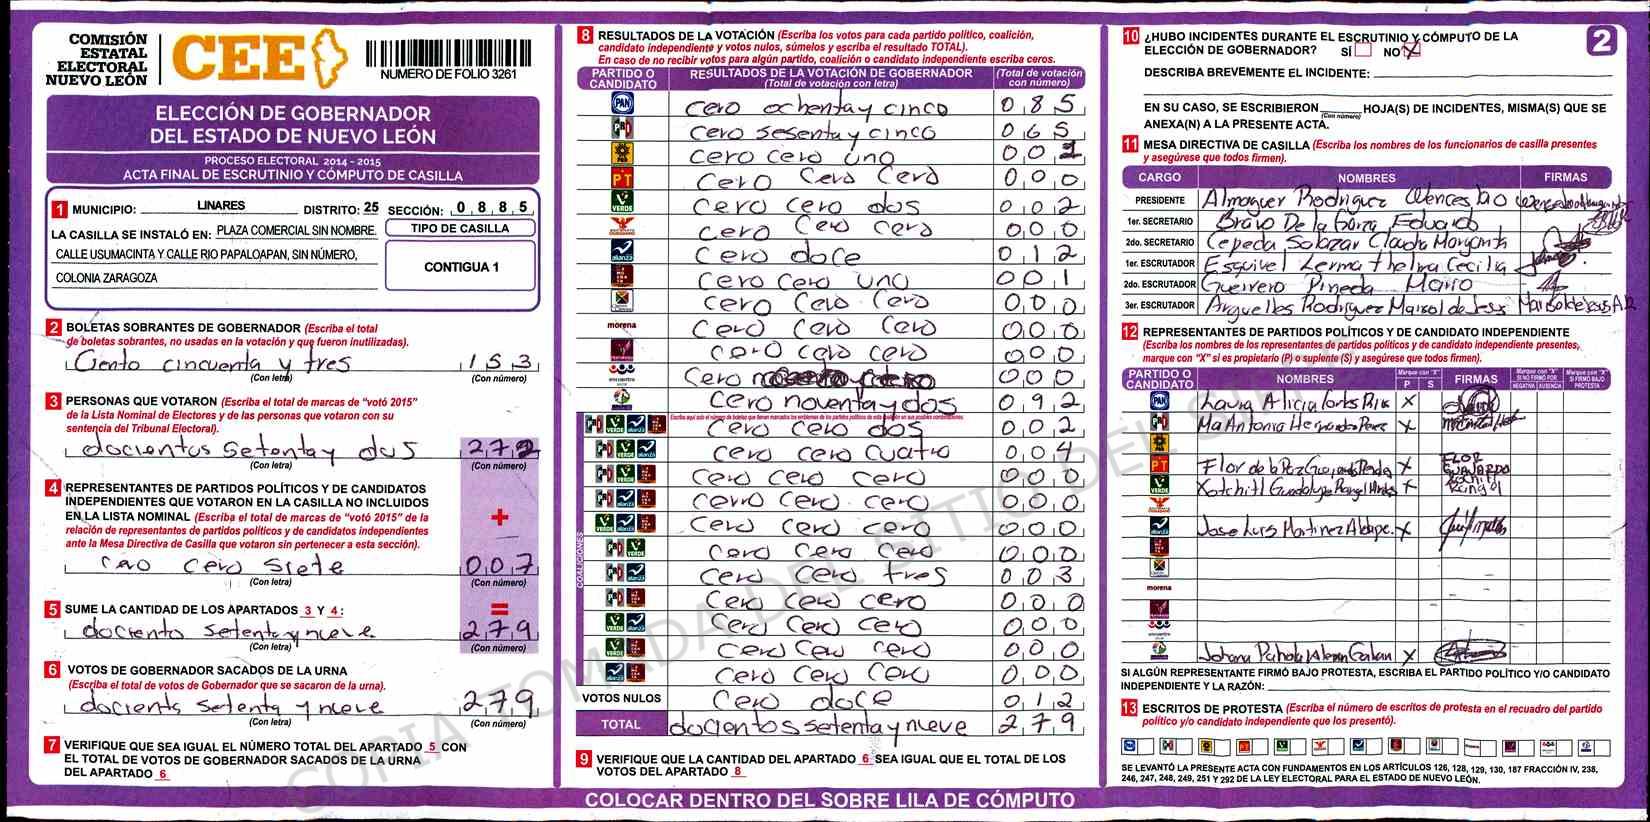 COMISIÓN
ESTATAL
ELECTORAL
NUEVO LEÓN
CEE
NUMERO DE FOLIO 3261
ELECCIÓN DE GOBERNADOR
DEL ESTADO DE NUEVO LEÓN
PROCESO ELECTORAL 2014 - 2015
ACTA FINAL DE ESCRUTINIO Y CÓMPUTO DE CASILLA
1 MUNICIPIO: LINARES DISTRITO: 25 SECCIÓN: 0 8 8 5
LA CASILLA SE INSTALÓ EN: PLAZA COMERCIAL SIN NOMBRE.
CALLE USUMACINTA Y CALLE RIO PAPALOAPAN, SIN NÚMERO,
COLONIA ZARAGOZA
TIPO DE CASILLA
CONTIGUA 1
2 BOLETAS SOBRANTES DE GOBERNADOR (Escriba el total
de boletas sobrantes, no usadas en la votación y que fueron inutilizadas).
Ciento cincuenta y tres 1 5 3
(Con letra) (Con número)
3 PERSONAS QUE VOTARON (Escriba el total de marcas de "votó 2015"
de la Lista Nominal de Electores y de las personas que votaron con su
sentencia del Tribunal Electoral).
docientos setenta y dos 2 7 2
(Con letra) (Con número)
4 REPRESENTANTES DE PARTIDOS POLÍTICOS Y DE CANDIDATOS
INDEPENDIENTES QUE VOTARON EN LA CASILLA NO INCLUIDOS
EN LA LISTA NOMINAL (Escriba el total de marcas de "votó 2015" de la
relación de representantes de partidos políticos y de candidatos independientes
ante la Mesa Directiva de Casilla que votaron sin pertenecer a esta sección).
+
cero cero siete 0 0 7
(Con letra) (Con número)
5 SUME LA CANTIDAD DE LOS APARTADOS 3 Y 4:
=
dociento setenta y nueve 2 7 9
(Con letra) (Con número)
6 VOTOS DE GOBERNADOR SACADOS DE LA URNA
(Escriba el total de votos de Gobernador que se sacaron de la urna).
docienta setenta y nueve 2 7 9
(Con letra) (Con número)
7 VERIFIQUE QUE SEA IGUAL EL NÚMERO TOTAL DEL APARTADO 5 CON
EL TOTAL DE VOTOS DE GOBERNADOR SACADOS DE LA URNA
DEL APARTADO 6
8 RESULTADOS DE LA VOTACIÓN (Escriba los votos para cada partido político, coalición,
candidato independiente y votos nulos, súmelos y escriba el resultado TOTAL).
En caso de no recibir votos para algún partido, coalición o candidato independiente escriba ceros.
PARTIDO O CANDIDATO RESULTADOS DE LA VOTACIÓN DE GOBERNADOR (Total de votación con letra) (Total de votación con número)
PAN cero ochenta y cinco 0 8 5
PRI cero sesenta y cinco 0 6 5
PRD cero cero uno 0 0 1
PT cero cero cero 0 0 0
VERDE cero cero dos 0 0 2
cero cero cero 0 0 0
alianza cero doce 0 1 2
cero cero uno 0 0 1
cero cero cero 0 0 0
morena cero cero cero 0 0 0
cero cero cero 0 0 0
encuentro cero 0 0 0
cero noventa y dos 0 9 2
COALICIONES
cero cero dos 0 0 2
cero cero cuatro 0 0 4
cero cero cero 0 0 0
cero cero cero 0 0 0
cero cero cero 0 0 0
cero cero cero 0 0 0
cero cero tres 0 0 3
cero cero cero 0 0 0
cero cero cero 0 0 0
cero cero cero 0 0 0
cero cero cero 0 0 0
VOTOS NULOS cero doce 0 1 2
TOTAL docientos setenta y nueve 2 7 9
9 VERIFIQUE QUE LA CANTIDAD DEL APARTADO 6 SEA IGUAL QUE EL TOTAL DE LOS
VOTOS DEL APARTADO 8
COLOCAR DENTRO DEL SOBRE LILA DE CÓMPUTO
10 ¿HUBO INCIDENTES DURANTE EL ESCRUTINIO Y CÓMPUTO DE LA
ELECCIÓN DE GOBERNADOR? SÍ NO X
2
DESCRIBA BREVEMENTE EL INCIDENTE:
EN SU CASO, SE ESCRIBIERON HOJA(S) DE INCIDENTES, MISMA(S) QUE SE
(Con número)
ANEXA(N) A LA PRESENTE ACTA.
11 MESA DIRECTIVA DE CASILLA (Escriba los nombres de los funcionarios de casilla presentes
y asegúrese que todos firmen).
CARGO NOMBRES FIRMAS
PRESIDENTE Almaguer Rodriguez Wenceslao
1er. SECRETARIO Bravo De la Garza Eduardo
2do. SECRETARIO Cepeda Salazar Claudia Margarita
1er. ESCRUTADOR Esquivel Lerma Thelma Cecilia
2do. ESCRUTADOR Guerrero Pineda Mario
3er. ESCRUTADOR Arguelles Rodriguez Marisol de Jesus
12 REPRESENTANTES DE PARTIDOS POLÍTICOS Y DE CANDIDATO INDEPENDIENTE
(Escriba los nombres de los representantes de partidos políticos y de candidato independiente presentes,
marque con "X" si es propietario (P) o suplente (S) y asegúrese que todos firmen).
PARTIDO O CANDIDATO NOMBRES Marque con "X" P S FIRMAS Marque con "X" SI NO FIRMÓ POR NEGATIVA AUSENCIA Marque con "X" SI FIRMÓ BAJO PROTESTA
PAN Laura Alicia X
PRI Ma Antonia Hernandez Perez X
PRD
PT Flor de la Paz X FLOR GUAJARDO
VERDE Xotchitl Guadalupe Rangel X Xotchitl Rangel
alianza Jose Luis Martinez X
morena
encuentro
Johana X
SI ALGÚN REPRESENTANTE FIRMÓ BAJO PROTESTA, ESCRIBA EL PARTIDO POLÍTICO Y/O CANDIDATO
INDEPENDIENTE Y LA RAZÓN:
13 ESCRITOS DE PROTESTA (Escriba el número de escritos de protesta en el recuadro del partido
político y/o candidato independiente que los presentó).
SE LEVANTÓ LA PRESENTE ACTA CON FUNDAMENTOS EN LOS ARTÍCULOS 126, 128, 129, 130, 187 FRACCIÓN IV, 238,
246, 247, 248, 249, 251 Y 292 DE LA LEY ELECTORAL PARA EL ESTADO DE NUEVO LEÓN.
COPIA TOMADA DEL SITIO DEL